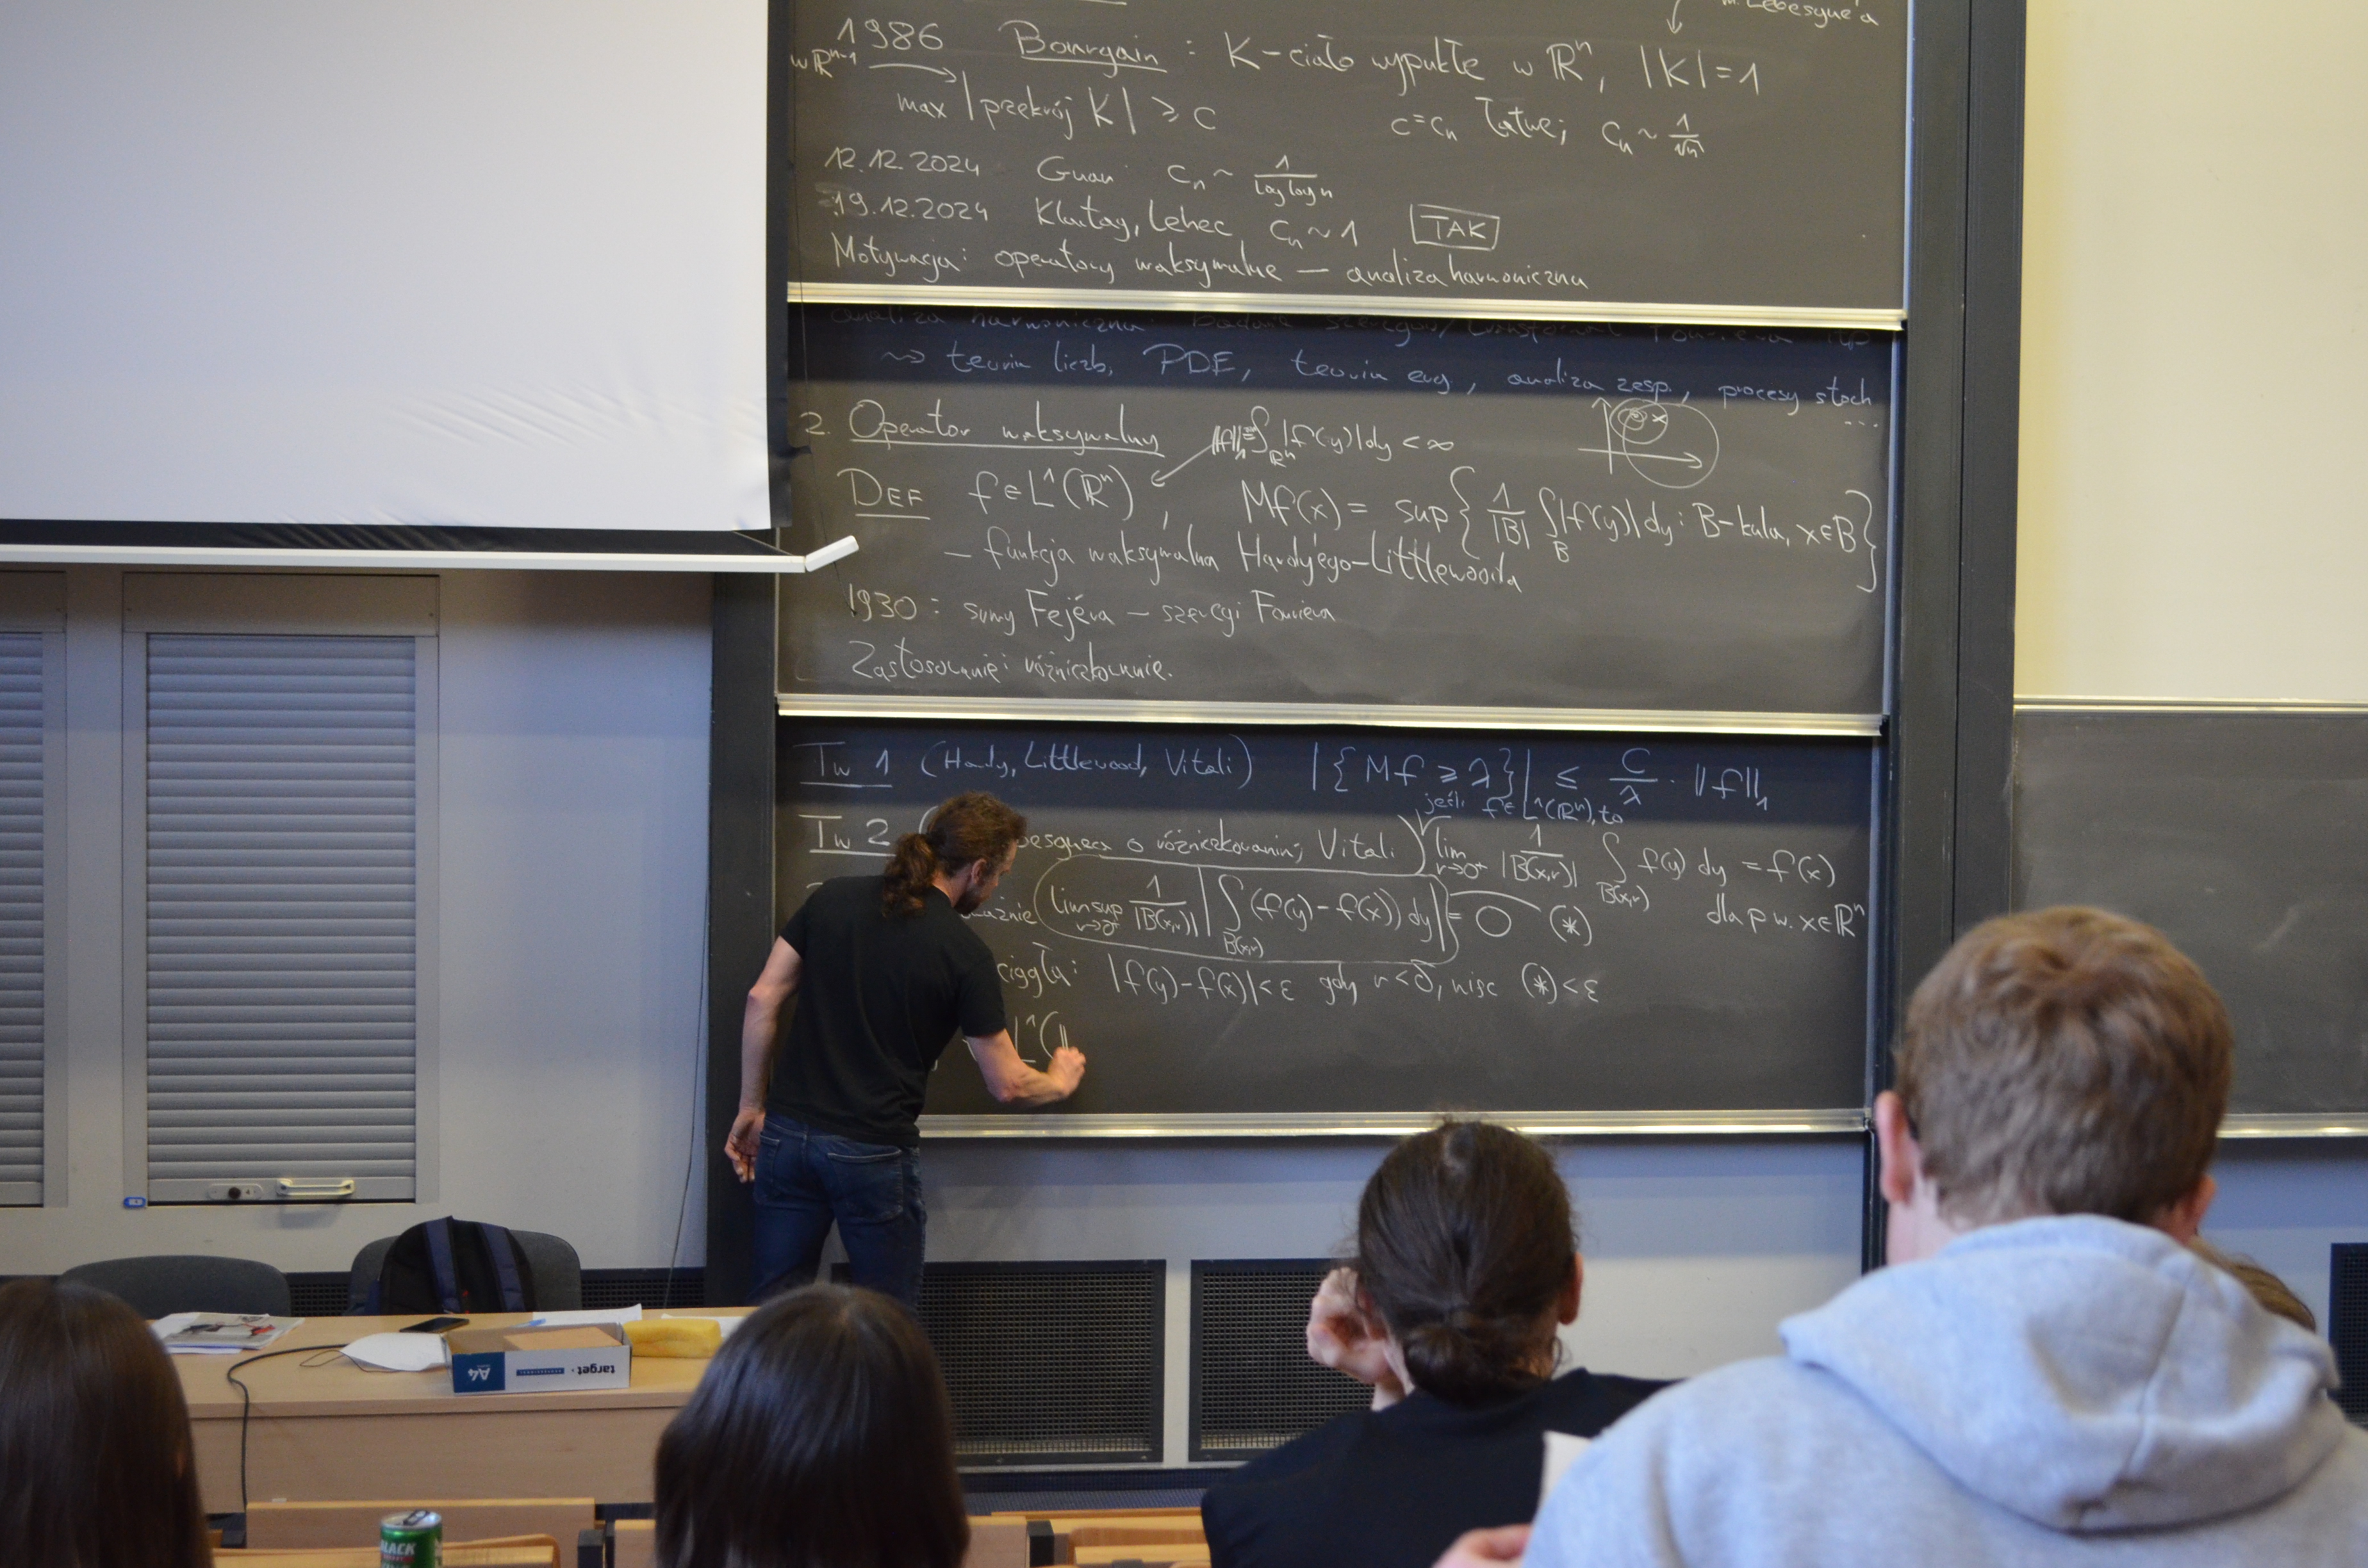 m. Lebesgue'a
1986 Bourgain : K-ciało wypukłe w ℝⁿ, |K|=1
w ℝⁿ⁻¹
max |przekrój K| ⩾ c c=cₙ łatwe; cₙ ~ 1/√n
12.12.2024 Guan cₙ ~ 1/(log log n)
19.12.2024 Klartag, Lehec cₙ ~ 1 TAK
Motywacja: operatory maksymalne — analiza harmoniczna
analiza harmoniczna: Badanie szeregów/transformat Fouriera
⇝ teoria liczb, PDE, teoria erg., analiza zesp., procesy stoch...
2. Operator maksymalny ‖f‖₁=∫_ℝⁿ |f(y)|dy < ∞
x
DEF f∈L¹(ℝⁿ), Mf(x) = sup{ 1/|B| ∫_B |f(y)|dy : B-kula, x∈B }
— funkcja maksymalna Hardy'ego-Littlewooda
1930 : sumy Fejéra — szeregi Fouriera
Zastosowanie: różniczkowanie.
Tw 1 (Hardy, Littlewood, Vitali) |{Mf ⩾ λ}| ≤ C/λ · ‖f‖₁
jeśli f∈L¹(ℝⁿ), to
Tw 2 besgue'a o różniczkowaniu; Vitali) lim_{r→0⁺} 1/|B(x,r)| ∫_{B(x,r)} f(y) dy = f(x)
dla p.w. x∈ℝⁿ
limsup_{r→0⁺} 1/|B(x,r)| |∫_{B(x,r)} (f(y)-f(x)) dy| = 0 (*)
ciągła: |f(y)-f(x)|<ε gdy r<δ, więc (*)<ε
L¹(
target
A4
BLACK